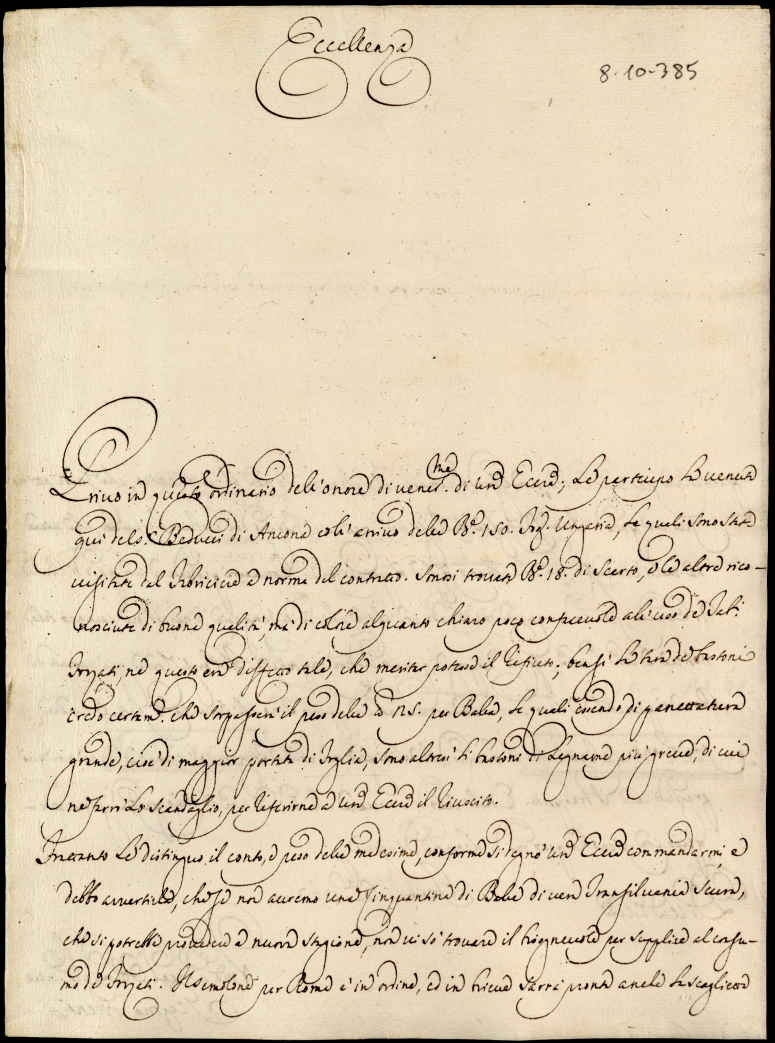 Eccellenza
8-10-385
Privo in questo ordinario dell'onore di venermi di Vrã Eccza; Le partecipo la venuta
qui del Sr. Beducci di Ancona coll'arrivo delle Be. 150. Fogl. Ungaria, le quali sono state
visitate dal a norma del contratto. Sonosi trovate Be. 18. di Scarto, e le altre rico-
nosciute di buona qualità, mà di colore alquanto chiaro poco confacevole all'uso de Tab.
ne questo era diffetto tale, che meritar potesse il rifiuto; bensì la tara de bastoni
credo certamte. che sorpasserà il peso delle per Balla, le quali essendo di panettatura
grande, cioè di maggior portata di foglia, sono altresì li bastoni di Legname più greve, di cui
ne farrò lo scandaglio, per riferirne a Vrã Eccza il riuscito.
Intanto Le distinguo il conto, e peso delle medesime, conforme si degnò Vrã Eccza commandarmi, e
debbo avvertirle, che se non avremo una cinquantina di Balle di vera Transilvania scura,
che si potrebbe provedere a nuova stagione, non vi sò trovare il bisognevole per supplire al consu-
mo de . Il semolone per Roma è in ordine, ed in brieve sarrà pronta anche la scaglietta